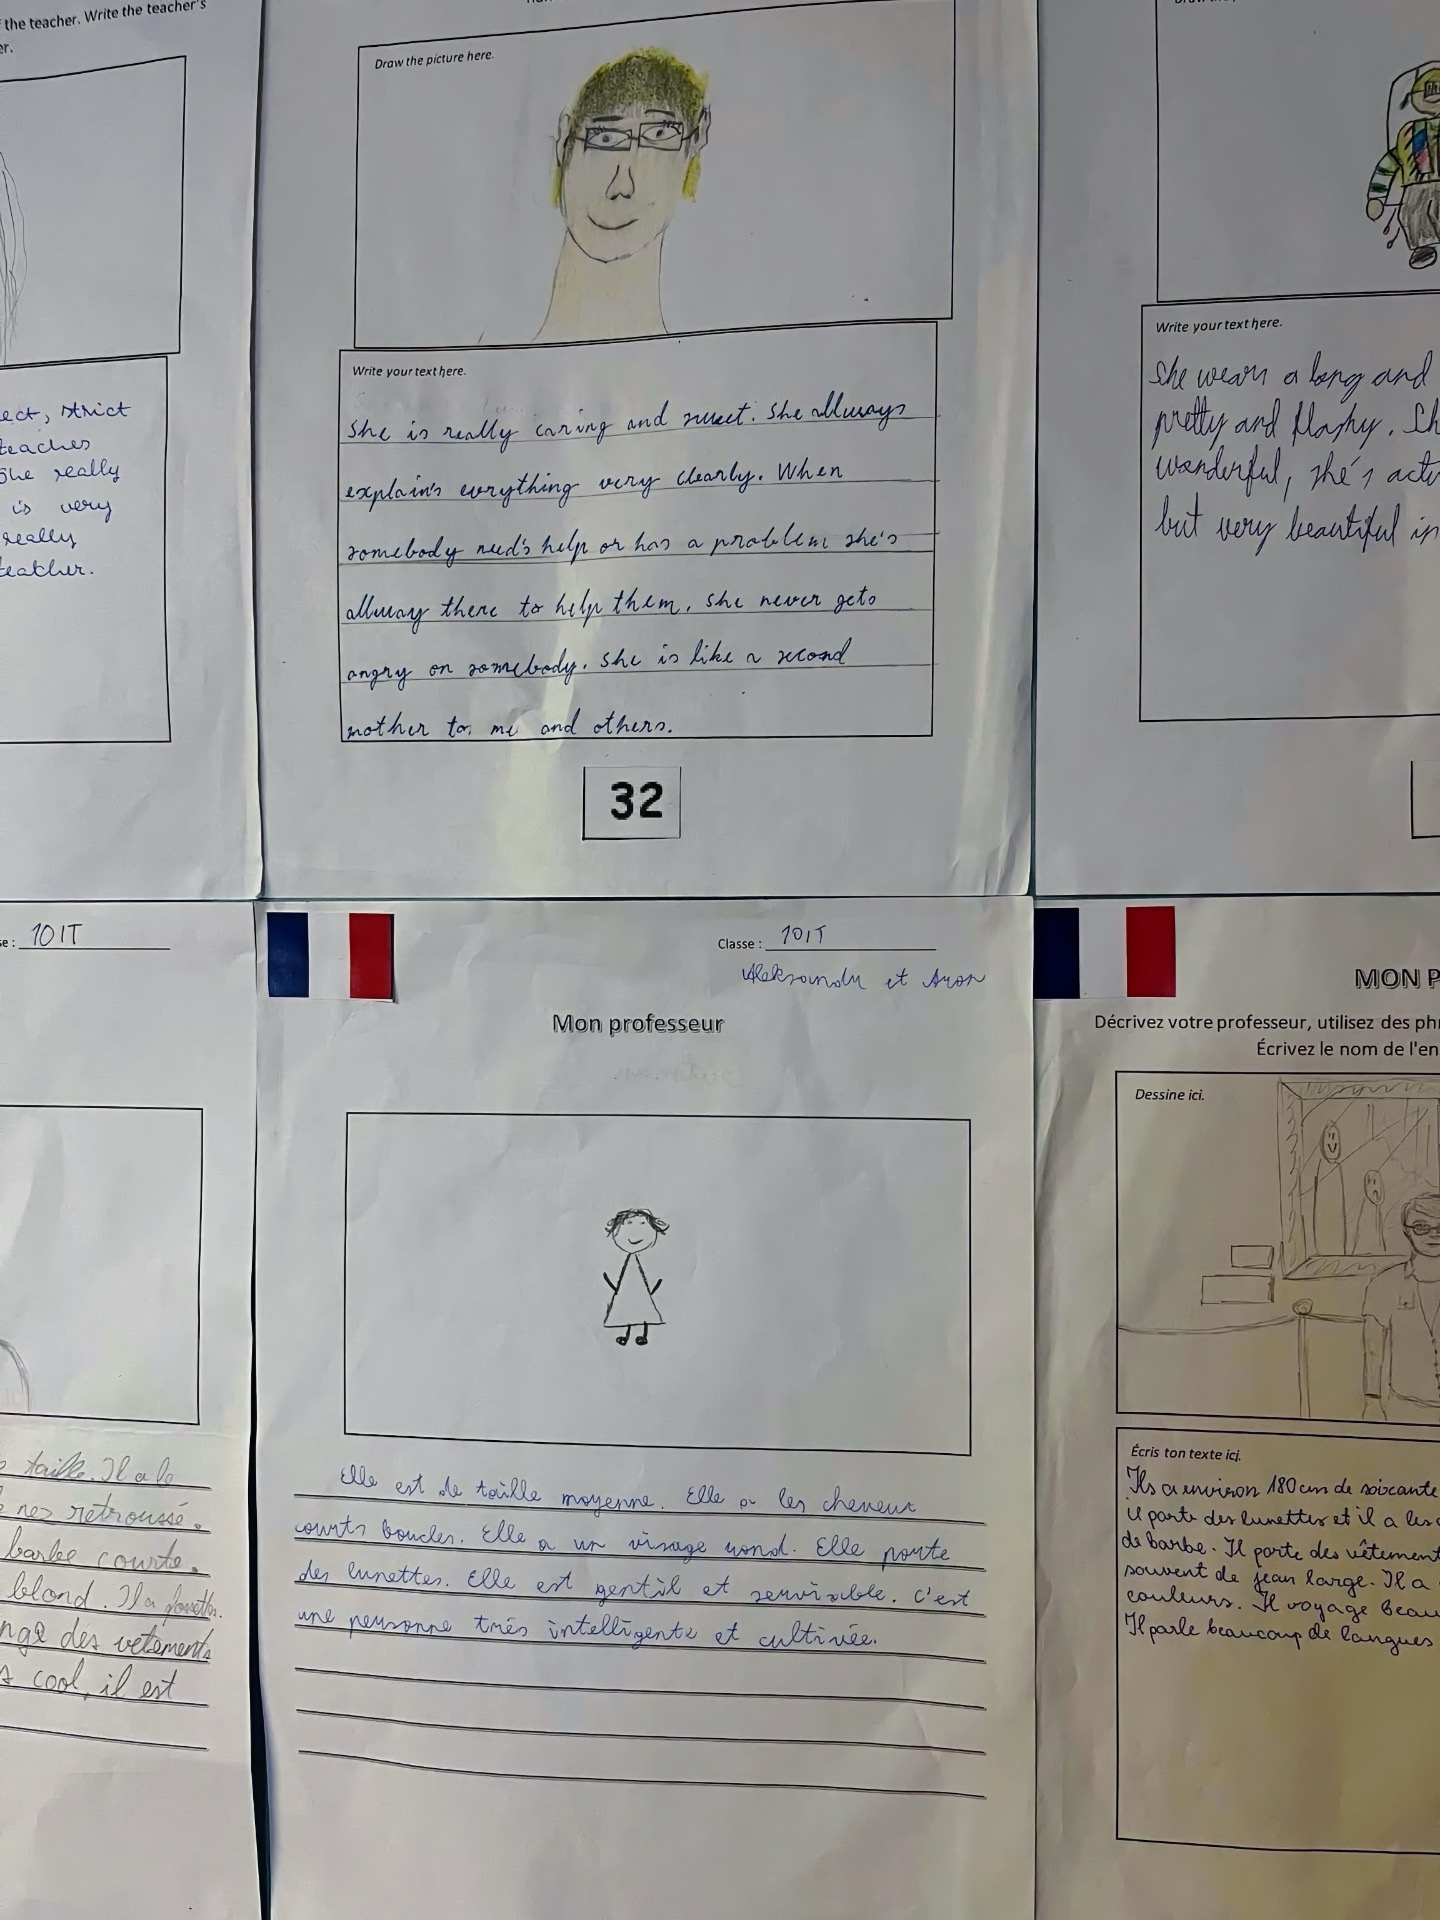 the teacher. Write the teacher's
er.
ect, strict
teaches
She really
is very
really
teatcher.
Draw the picture here.
Write your text here.
She is really caring and sweet. She allways
explain's evrything very clearly. When
somebody need's help or has a problem she's
allway there to help them. She never gets
angry on somebody. She is like a second
mother to me and others.
32
Write your text here.
She wears a long and
pretty and flashy. Sh
wonderful, she's actu
but very beautiful in
se : 10IT
taille. Il a le
nez retroussé.
barbe courte.
blond. Il a
nge des vetements
s cool, il est
Classe : 10IT
et Aron
Mon professeur
Elle est de taille moyenne. Elle a les cheveux
courts boucles. Elle a un visage rond. Elle porte
des lunettes. Elle est gentil et serviable. C'est
une personne très intelligente et cultivée.
MON P
Décrivez votre professeur, utilisez des phr
Écrivez le nom de l'en
Dessine ici.
Écris ton texte ici.
Ils a environ 180 cm de soixante
il porte des lunettes et il a les
de barbe. Il porte des vêtement
souvent de jean large. Il a
couleurs. Il voyage beau
Il parle beaucoup de langues